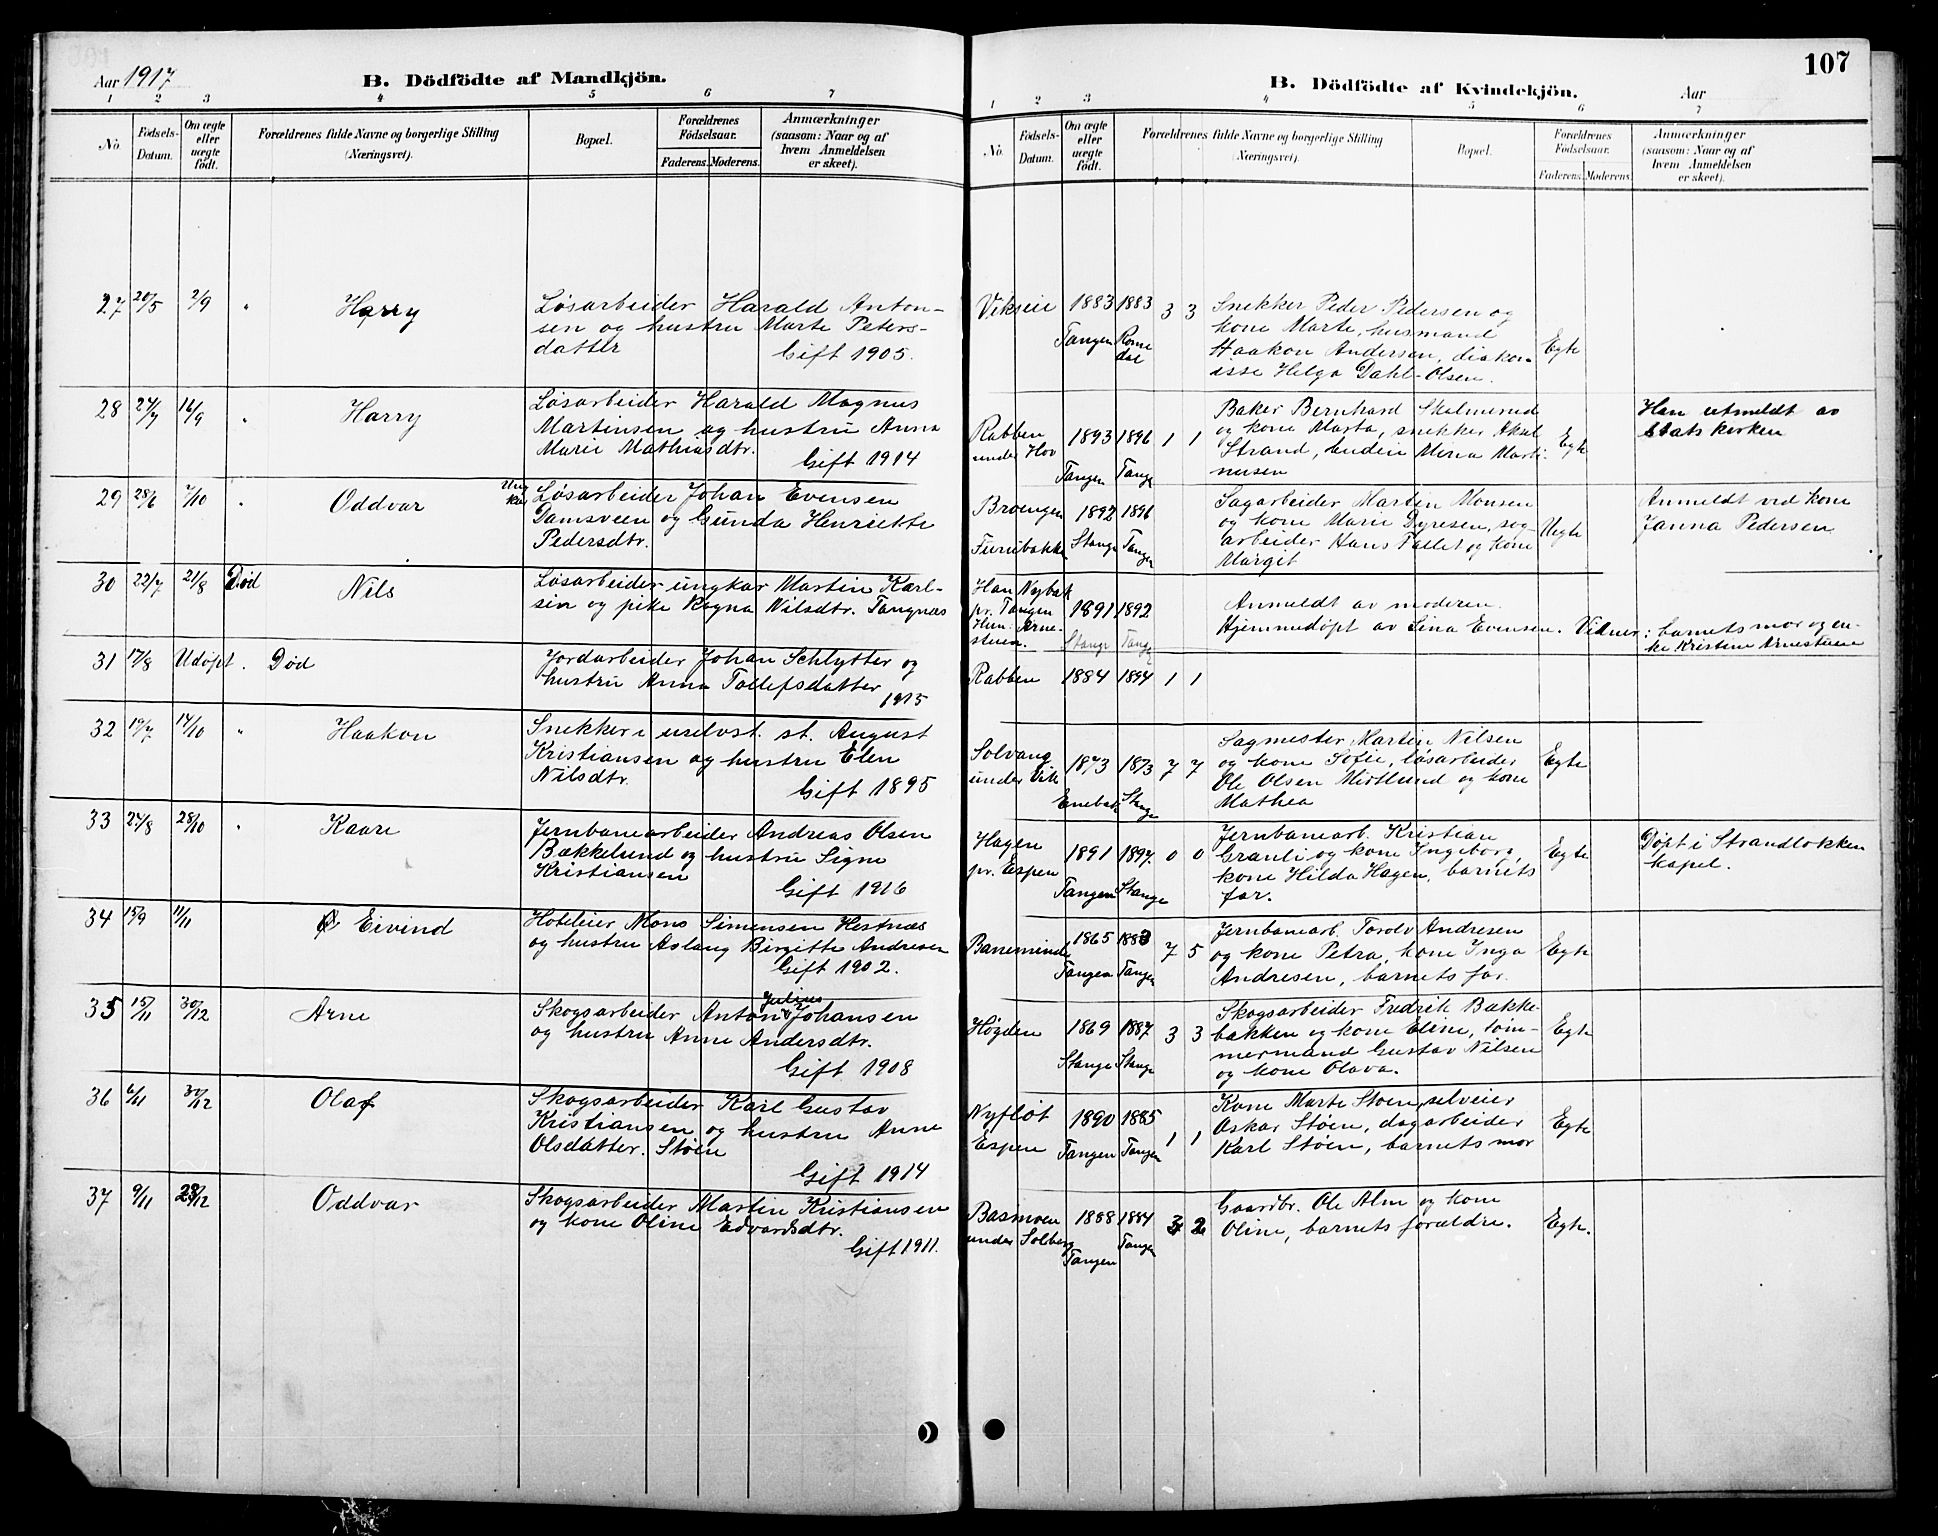 Aar 1917
B. Dödfödte af Mandkjön.
1 2 3 4 5 6 7
No. Födsels-Datum. Om ægte eller uægte födt. Forældrenes fulde Navne og borgerlige Stilling (Næringsvei). Bopæl. Forældrenes Födselsaar. Faderens. Moderens. Anmærkninger (saasom: Naar og af hvem Anmeldelsen er skeet).
107
B. Dödfödte af Kvindekjön.
Aar
1 2 3 4 5 6 7
No. Födsels-Datum. Om ægte eller uægte födt. Forældrenes fulde Navne og borgerlige Stilling (Næringsvei). Bopæl. Forældrenes Födselsaar. Faderens. Moderens. Anmærkninger (saasom: Naar og af hvem Anmeldelsen er skeet).
27 20/5 2/9 " Harry
Løsarbeider Harald Anton-
sen og hustru Marte Peters-
datter
Gift 1905.
Vikseie 1883 1883 3 3
Tangen Romedal
Snekker Peder Pedersen og
kone Marte, husmand
Haakon Andersen, diakon-
isse Helga Dahl-Olsen.
Egte
28 24/7 16/9 " Harry
Løsarbeider Harald Magnus
Martinsen og hustru Anna
Marie Mathiasdtr.
Gift 1914
Rabben
under Hov
1893 1896 1 1
Tangen Tangen
Baker Bernhard Skalmerud
og kone Marta, snekker
Strand, Mina Marti-
nusen
Egte
Han utmeldt av
statskirken
29 28/6 7/10 " Oddvar
Ung
kar
Løsarbeider Johan Evensen
Damsveen og Gunda Henriette
Pedersdtr.
Broengen
Furubakken
1892 1896
Stange Tangen
Sagarbeider Martin Monsen
og kone Marie Dyresen, sag-
arbeider Hans Tallet og kone
Margit
Uegte
Anmeldt ved kone
Janna Pedersen
30 22/7 21/8 Død Nils
Løsarbeider ungkar Martin Karl-
sen og pike Ragna Nilsdtr. Tangnæs
Han Nybak
pr. Tangen
Hun: Arne-
stuen.
1891 1892
Stange Tangen
Anmeldt av moderen.
Hjemmedøpt av Lina Evensen. Vidner: barnets mor og en-
ke Kristine Arnestuen
31 17/8 Udøpt. Død
Jordarbeider Johan Schlytter og
hustru Anna Tollefsdatter
1915
Rabben 1884 1894 1 1
32 19/7 14/10 " Haakon
Snekker i uselvst. st. August
Kristiansen og hustru Elen
Nilsdtr.
Gift 1895
Solvang
under Vik
1873 1873 7 7
Enebak Stange
Sagmester Martin Nilsen
og kone Sofie, løsarbeider
Ole Olsen Midtlund og kone
Mathea
Egte
33 24/8 28/10 " Kaare
Jernbanearbeider Andreas Olsen
Bækkelund og hustru Signe
Kristiansen
Gift 1916
Hagen
pr. Espen
1891 1897 0 0
Tangen Stange
Jernbanearb. Kristian
Granli og kone Ingeborg,
kone Hilda Hagen, barnets
far.
Egte
Døpt i Strandlokken
kapel.
34 15/9 11/11 Eivind
Hoteleier Mons Simensen Hestnæs
og hustru Aslaug Birgitte Andresen
Gift 1902.
Baneminde
1865 1883 7 5
Tangen Tangen
Jernbanearb. Torolv Andresen
og kone Petra, kone Inga
Andresen, barnets far.
Egte
35 15/11 30/12 Arne
Julius
Skogsarbeider Anton Johansen
og hustru Anne Andersdtr.
Gift 1908
Høgden 1869 1887 3 3
Stange Stange
Skogsarbeider Fredrik Bakke-
bakken og kone Eline, tøm-
mermand Gustav Nilsen
og kone Olava.
Egte
36 6/11 30/12 Olaf
Skogsarbeider Karl Gustav
Kristiansen og hustru Anne
Olsdatter. Støen
Gift 1914
Nyfløt
Espen
1890 1885 1 1
Tangen Tangen
Kone Marte Støen, selveier
Oskar Støen, dagarbeider
Karl Støen, barnets mor
Egte
37 9/11 23/12 Oddvar
Skogsarbeider Martin Kristiansen
og kone Oline Edvardsdtr.
Gift 1911.
Basmoen
under Solberg
1888 1884 3 2
Tangen Tangen
Gaardbr. Ole Alm og kone
Oline, barnets forældre.
Egte.